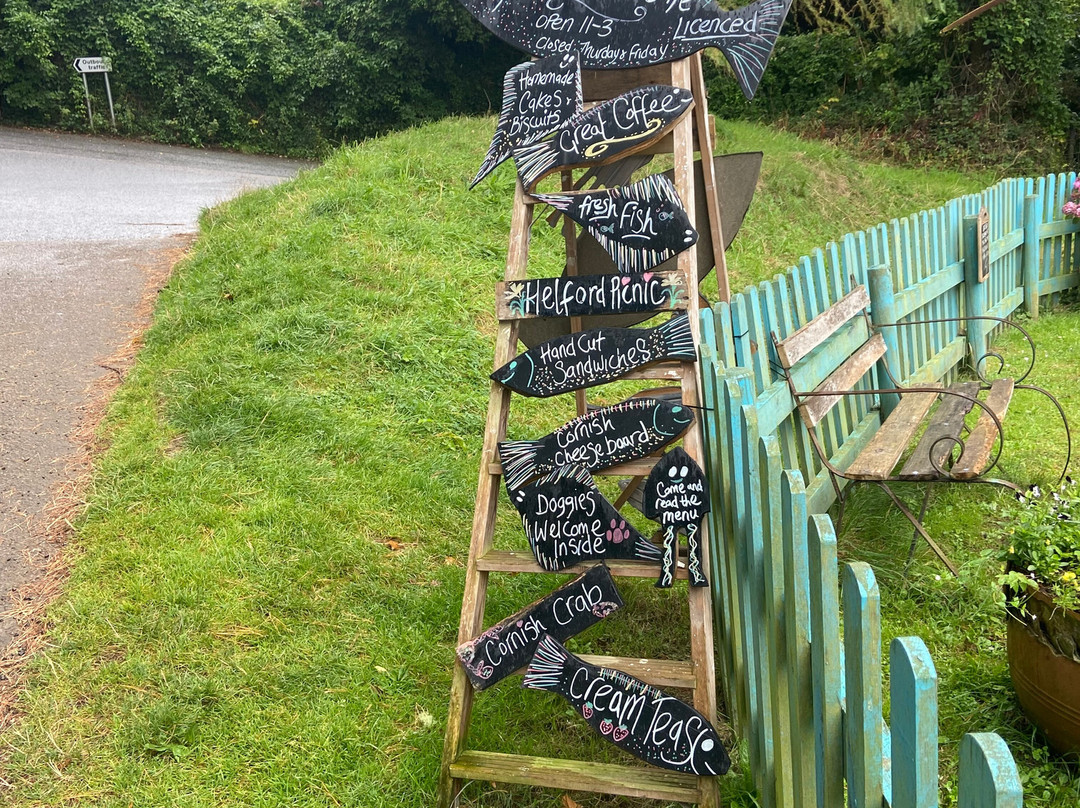 Outbound
traffic
Licenced
open 11-3
Closed Thurday & Friday
Homemade
Cakes &
Biscuits
Great Coffee
fresh Fish
Helford Picnic
Hand Cut
Sandwiches
Cornish
Cheese board
Doggies
Welcome
Inside
Come and
read the
menu
Cornish Crab
Cream Teas